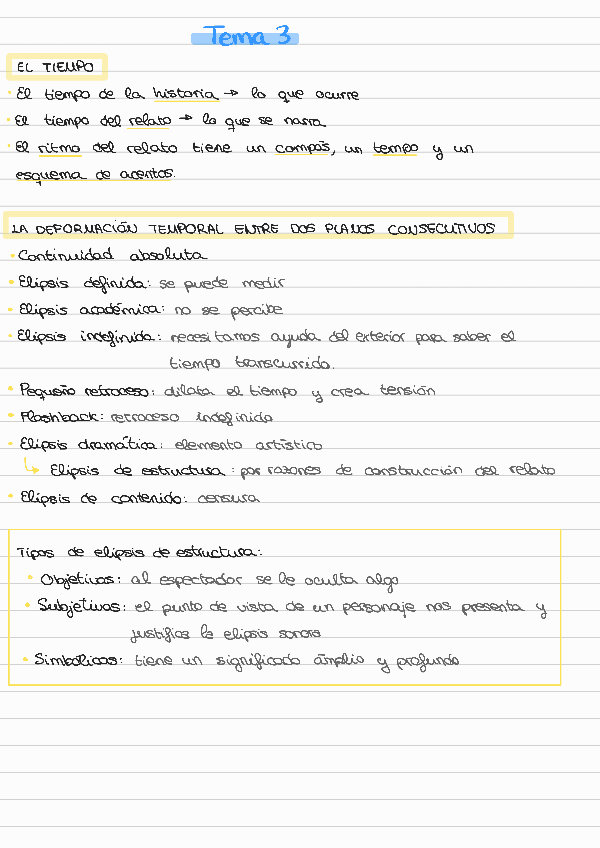 Tema 3
EL TIEMPO
• El tiempo de la historia → lo que ocurre
• El tiempo del relato → lo que se narra
• El ritmo del relato tiene un compás, un tempo y un
esquema de acentos.
LA DEFORMACIÓN TEMPORAL ENTRE DOS PLANOS CONSECUTIVOS
• Continuidad absoluta
• Elipsis definida: se puede medir
• Elipsis académica: no se percibe
• Elipsis indefinida: necesitamos ayuda del exterior para saber el
tiempo transcurrido.
• Pequeño retroceso: dilata el tiempo y crea tensión
• Flashback: retroceso indefinido
• Elipsis dramática: elemento artístico
↳ Elipsis de estructura: por razones de construcción del relato
• Elipsis de contenido: censura
Tipos de elipsis de estructura:
• Objetivas: al espectador se le oculta algo
• Subjetivas: el punto de vista de un personaje nos presenta y
justifica la elipsis sonora
• Simbólicas: tiene un significado amplio y profundo